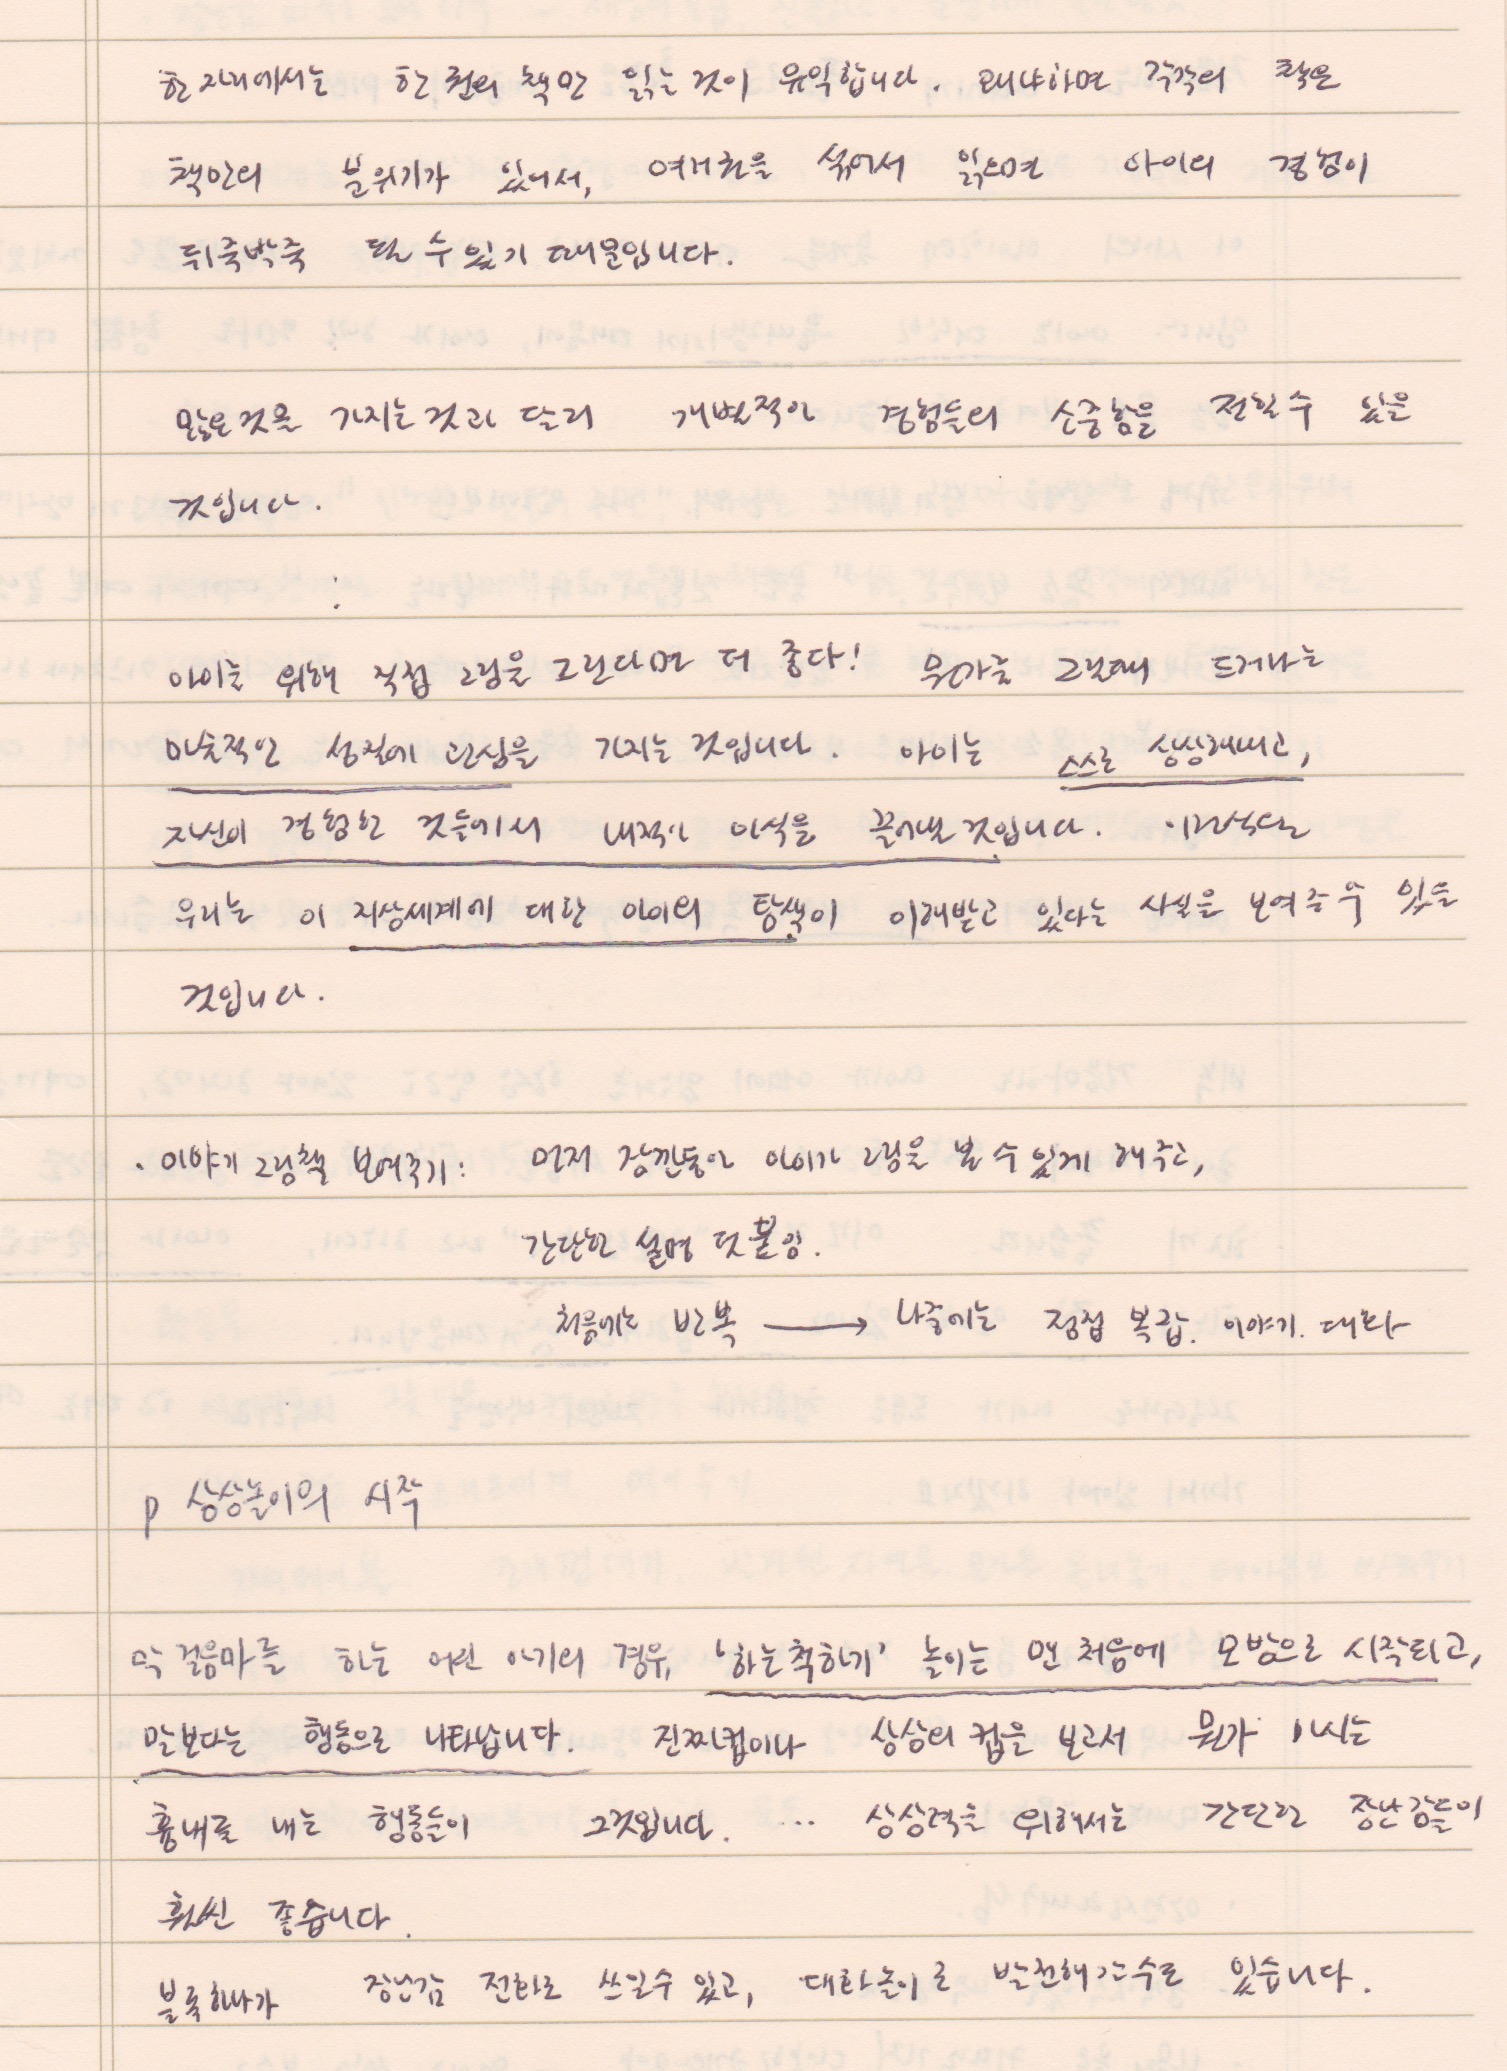 한 자리에서는 한 권의 책만 읽는 것이 유익합니다. 왜냐하면 각각의 책은
책만의 분위기가 있어서, 여러권을 섞어서 읽으면 아이의 경험이
뒤죽박죽 될 수 있기 때문입니다.
많은 것을 가지는 것과 달리 개별적인 경험들의 소중함을 전할 수 있을
것입니다.
:
아이를 위해 직접 그림을 그린다면 더 좋다! 뭔가를 그릴때 드러나는
마술적인 성질에 관심을 가지는 것입니다. 아이는 스스로 상상해내고,
자신이 경험한 것들에서 내적인 의식을 끌어낼 것입니다. 이런식으로
우리는 이 지상세계에 대한 아이의 탐색이 이해받고 있다는 사실을 보여줄 수 있을
것입니다.
· 이야기 그림책 보여주기: 먼저 잠깐동안 아이가 그림을 볼 수 있게 해주고,
간단한 설명 덧붙임.
처음에는 반복 → 나중에는 점점 복잡. 이야기. 대화
p 상상놀이의 시작
막 걸음마를 하는 어린 아기의 경우, '하는척하기' 놀이는 맨 처음에 모방으로 시작되고,
말보다는 행동으로 나타납니다. 진짜컵이나 상상의 컵을 보고서 뭔가 마시는
흉내를 내는 행동들이 그것입니다. ... 상상력을 위해서는 간단한 장난감들이
훨씬 좋습니다.
블록하나가 장난감 전화로 쓰일수 있고, 대화놀이로 발전해 갈 수도 있습니다.